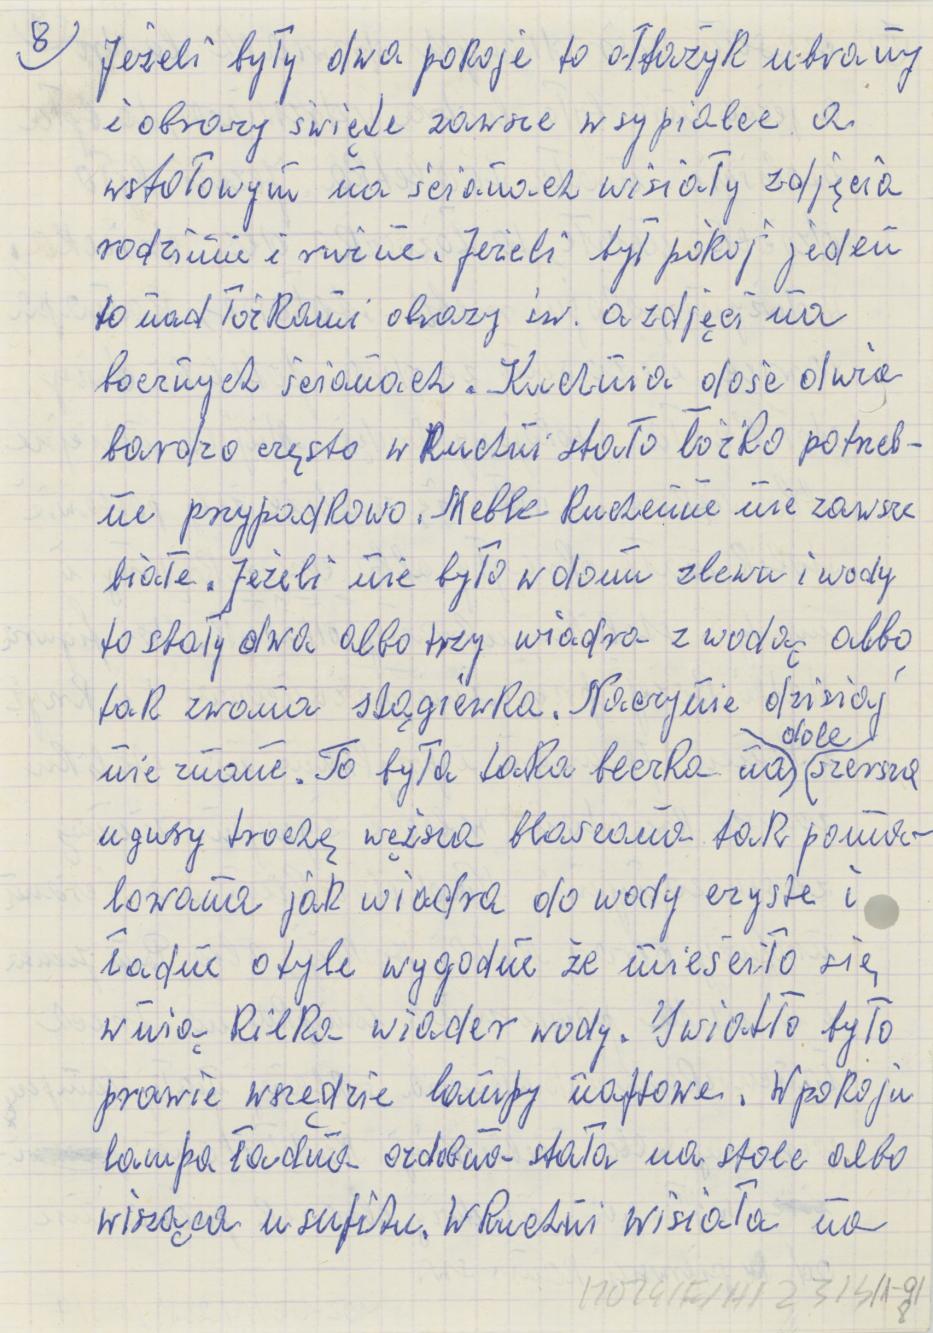 8
Jeżeli były dwa pokoje to ołtażyk ubrany
i obrazy święte zawsze w sypialce a
wstołowym na ścianach wisiały zdjęcia
rodzinne i rużne. Jeżeli był pokój jeden
to nad łóżkami obrazy św. a zdjęci na
bocznych ścianach. Kuchnia dość duża
bardzo często w kuchni stało łóżko potrzeb-
ne przypadkowo. Meble kuchenne nie zawsze
białe. Jeżeli nie było w domu zlewu i wody
to stały dwa albo trzy wiadra z wodą albo
tak zwana stągiewka. Naczynie dzisiaj
dole
nie znane. To była taka beczka na szersza
u gury trochę węższa blaszana tak poma-
lowana jak wiadra do wody czyste i
ładne o tyle wygodne że mieściło się
w nią kilka wiader wody. Swiatło było
prawie wszędzie lampy naftowe. W pokoju
lampa ładna ozdobna stała na stole albo
wisząca u sufitu. W kuchni wisiała na